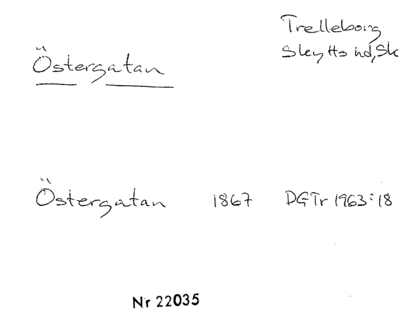 Trelleborg
Östergatan Skytts hd, Sk
Östergatan 1867 DGTr 1963:18
Nr 22035